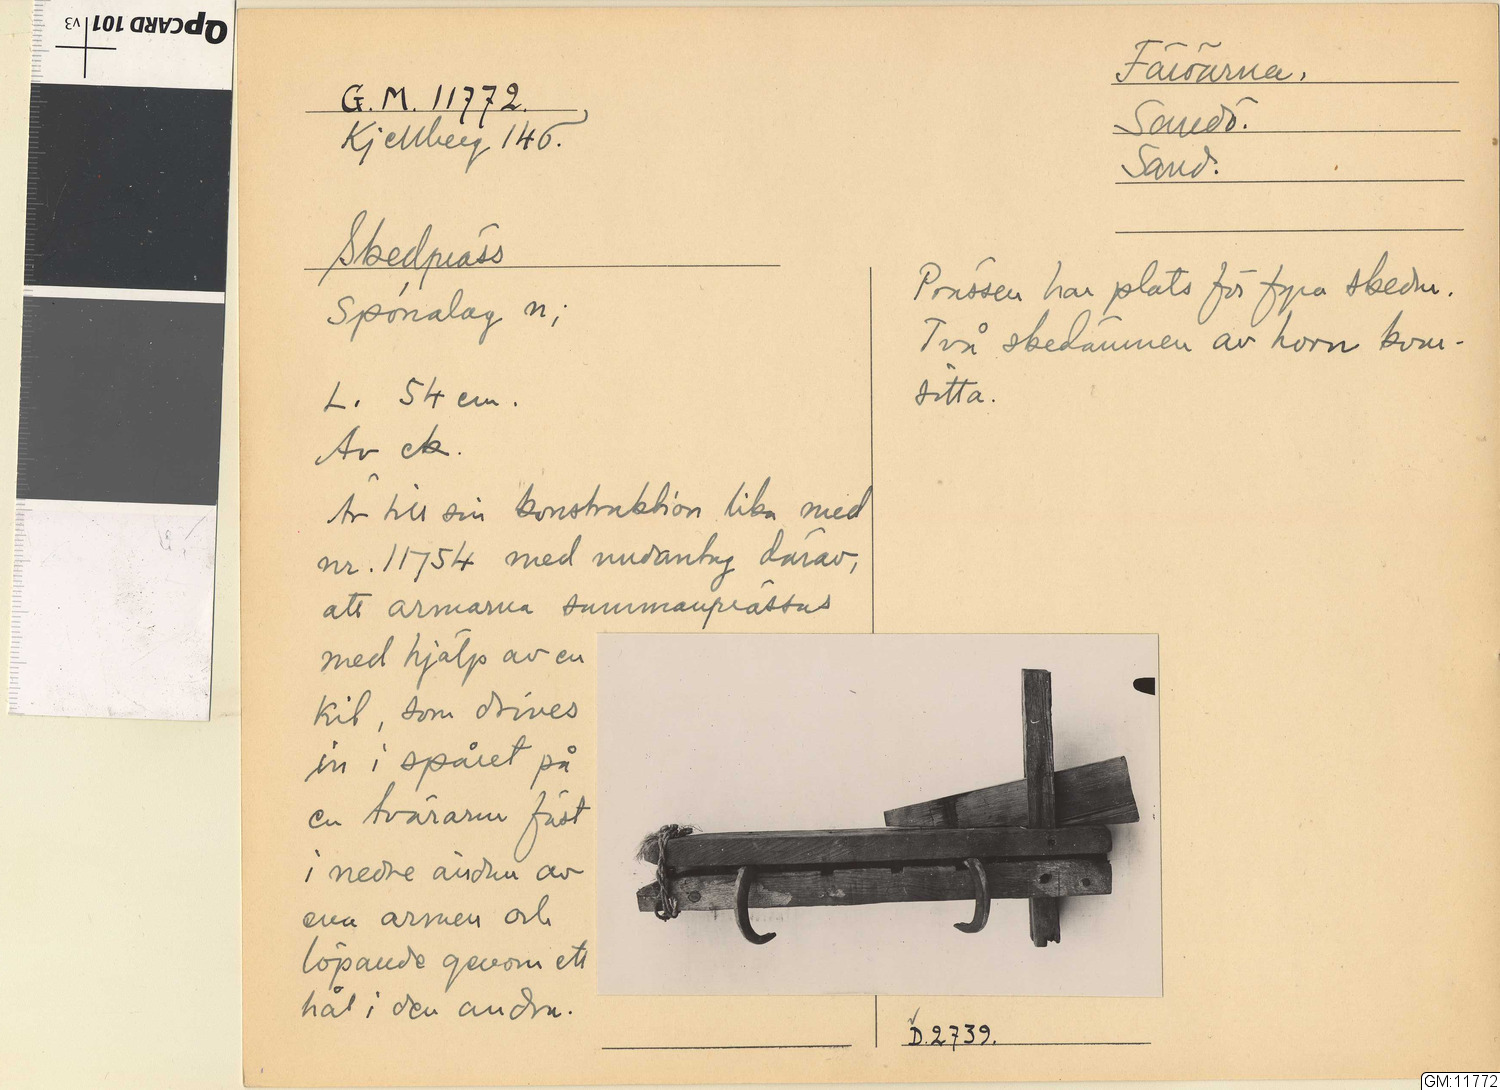 QPCARD 101 v3
G.M. 11772.
Kjellberg 146.
Färöarna.
Sandö.
Sand.
Skedpräss
Spónalag n;
L. 54 cm.
Av ek.
Är till sin konstruktion lika med
nr. 11754 med undantag därav,
att armarna sammanprässas
med hjälp av en
kil, som drives
in i spåret på
en tvärarm fäst
i nedre ändan av
ena armen och
löpande genom ett
hål i den andra.
Prässen har plats för fyra skedar.
Två skedämnen av horn kvar-
sitta.
D.2739.
GM:11772